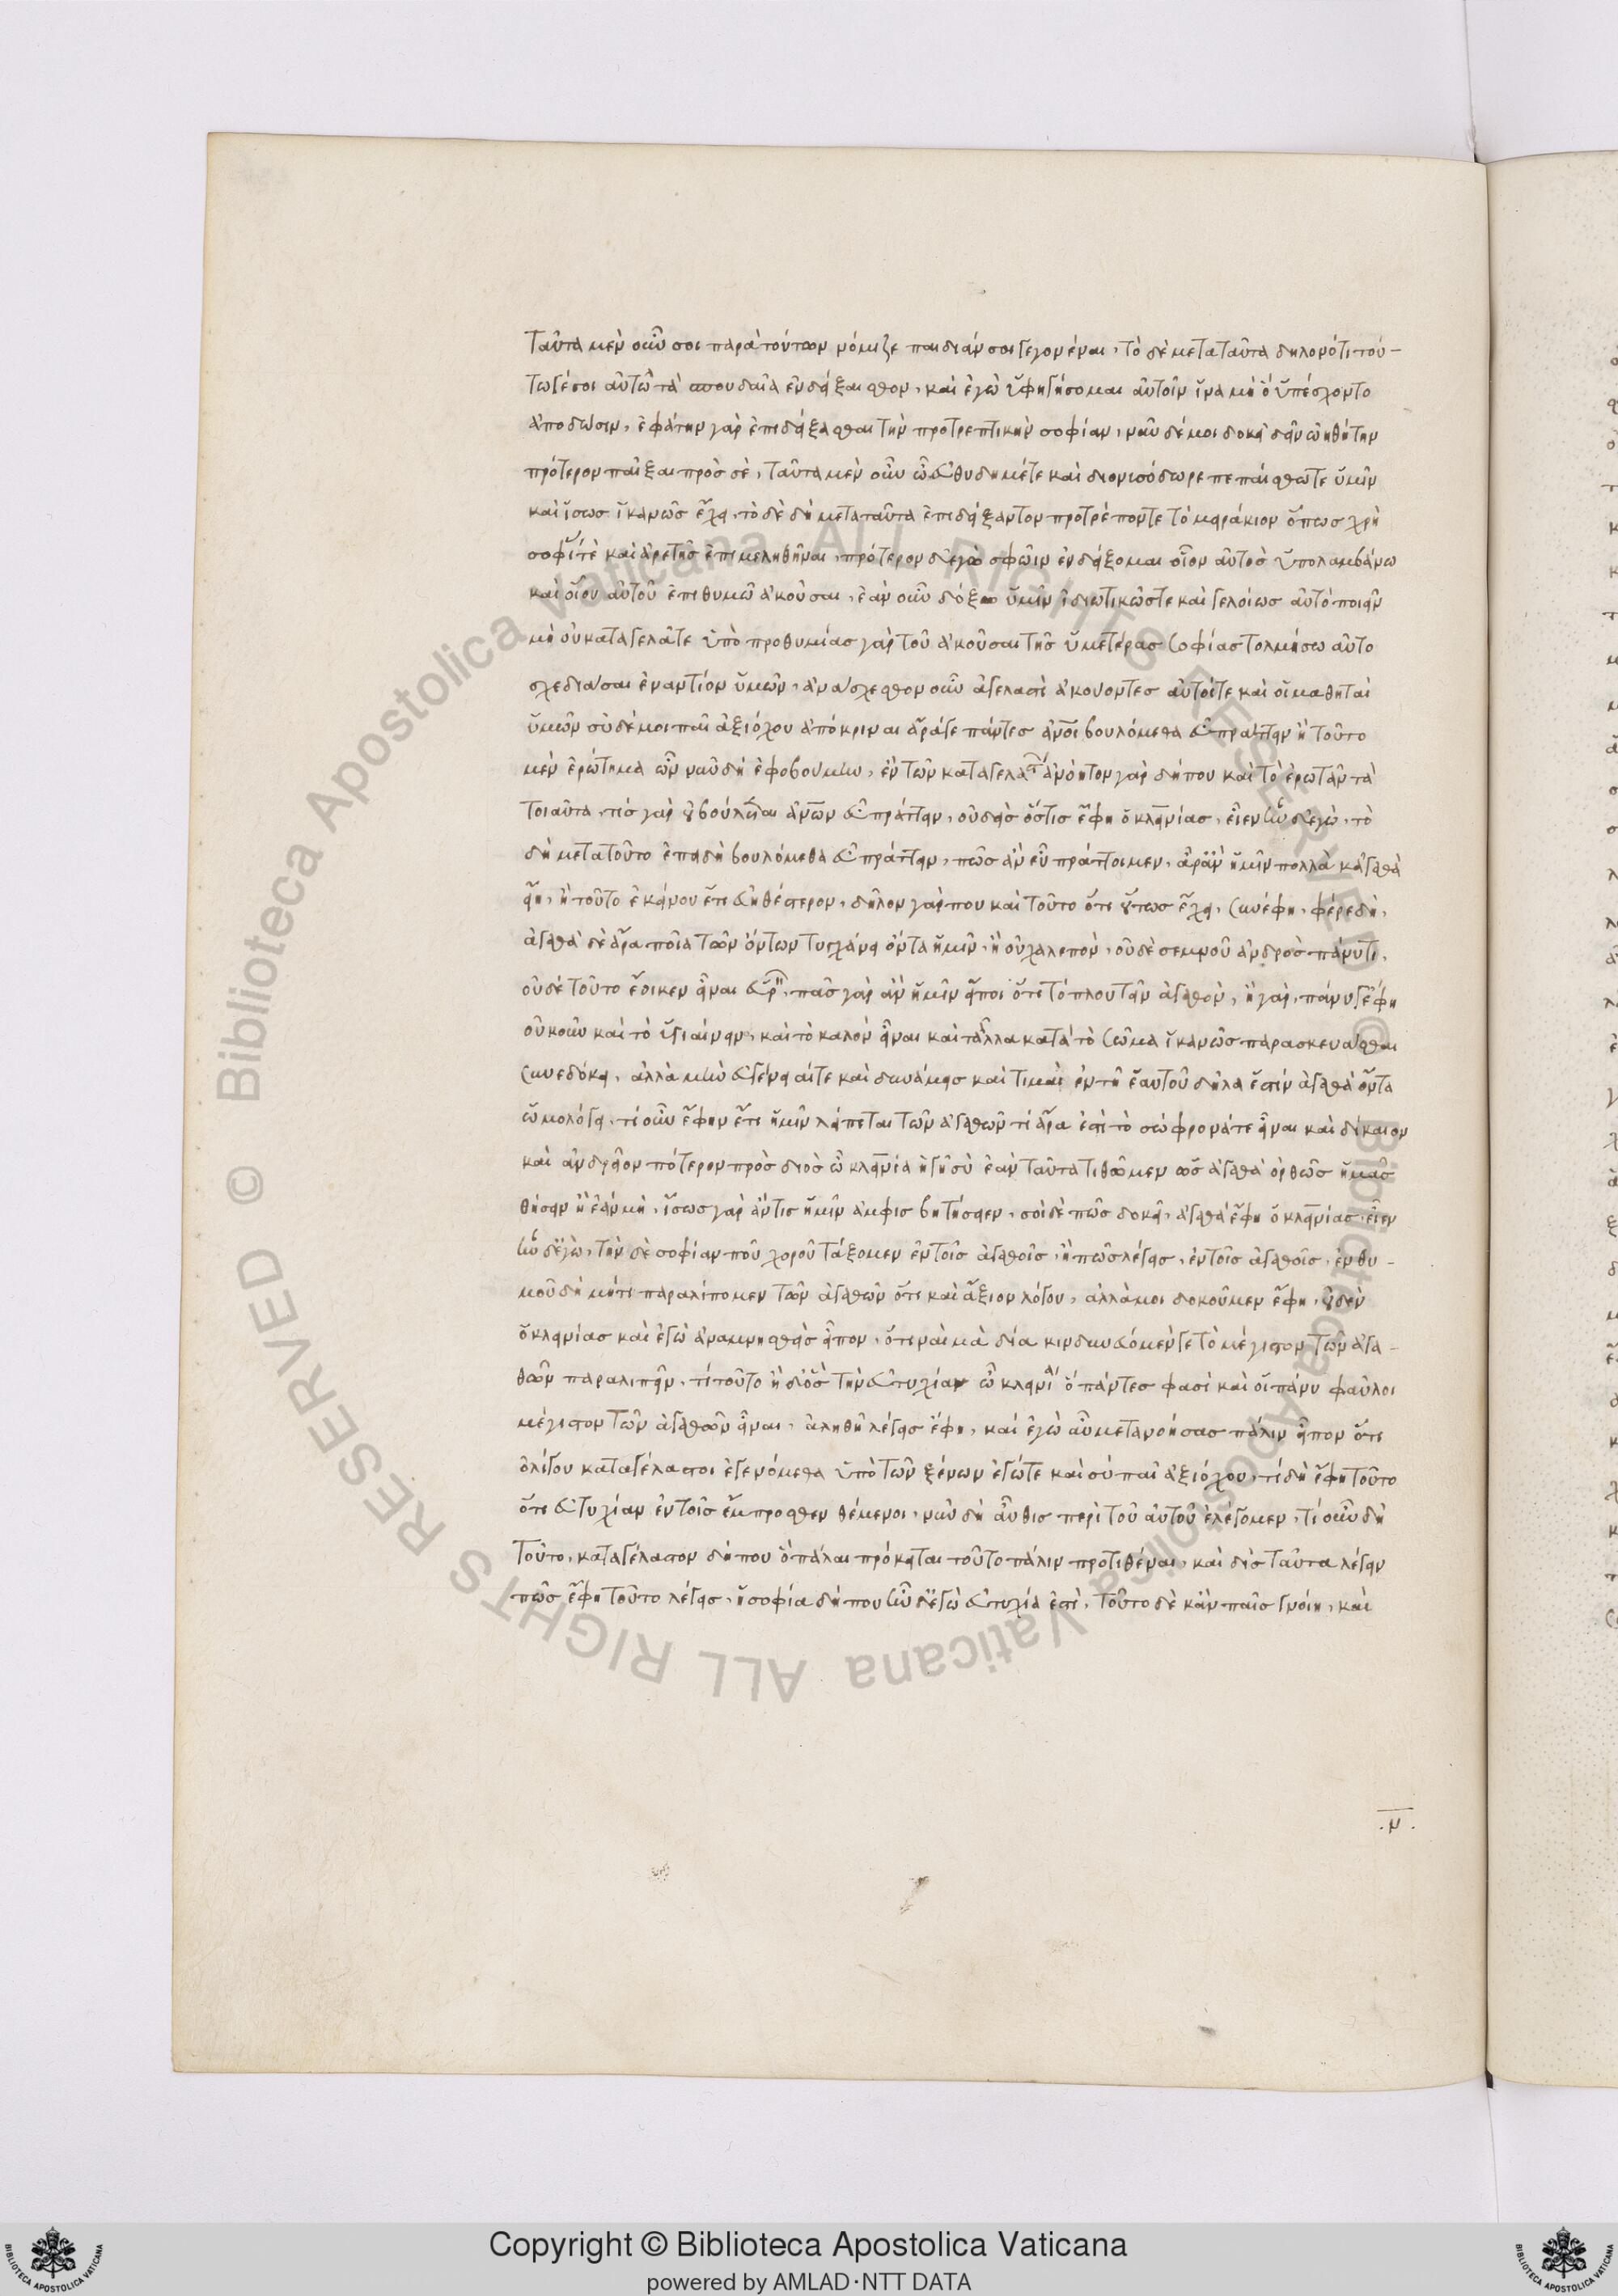 Ταῦτα μὲν οὖν σοι παρὰ τούτων νόμιζε παιδιάν σοι γεγονέναι, τὸ δὲ μεταταῦτα δηλονότι τού-
τω γέ σοι αὐτὼ τὰ σπουδαῖα ἐνδείξαισθον, καὶ ἐγὼ ὑφηγήσομαι αὐτοῖν ἵνα μὴ ὃ ὑπέσχοντο
ἀποδώσιν, ἐφάτην γὰρ ἐπιδείξασθαι τὴν προτρεπτικὴν σοφίαν, νῦν δέ μοι δοκεῖ δεῖν ὠηθήτην
πρότερον παῖξαι πρὸς σέ, ταῦτα μὲν οὖν ὦ εὐθύδημέ τε καὶ διονισόδωρε πεπαίσθω τε ὑμῖν
καὶ ἴσως ἱκανῶς ἔχει, τὸ δὲ δὴ μεταταῦτα ἐπιδείξατον προτρέποντε τὸ μειράκιον ὅπως χρὴ
σοφίτὲ καὶ ἀρετῆς ἐπιμεληθῆναι, πρότερον δ' ἐγὼ σφῶιν ἐνδείξομαι οἷον αὐτὸς ὑπολαμβάνω
καὶ οἵου αὐτοῦ ἐπιθυμῶ ἀκοῦσαι, ἐὰν οὖν δόξω ὑμῖν ἰδιωτικῶς τε καὶ γελοίως αὐτὸ ποιεῖν
μή ου καταγελᾶτε ὑπὸ προθυμίας γὰρ τοῦ ἀκοῦσαι τῆς ὑμετέρας σοφίας τολμήσω αὐτο
σχεδιάσαι ἐναντίον ὑμῶν, ἀνάσχεσθον οὖν ἀγελαστὶ ἀκούοντες αὐτοί τε καὶ οἱ μαθηταὶ
ὑμῶν σὺ δέ μοι παῖ ἀξιόχου ἀπόκριναι ἆρά γε πάντες ἄνοι βουλόμεθα εὖ πράττειν ἢ τοῦτο
μὲν ἐρώτημα ὧν νῦν δὴ ἐφοβούμην, ἓν τῶν καταγελαστ ἀνόητον γὰρ δήπου καὶ τὸ ἐρωτᾶν τὰ
τοιαῦτα, τίς γὰρ οὐ βούλεται ἀνων εὖ πράττειν, οὐδεὶς ὅστις ἔφη ὁ κλεινίας, εἶεν ἦν δ' ἐγώ, τὸ
δὴ μετατοῦτο ἐπειδὴ βουλόμεθα εὖ πράττειν, πῶς ἂν εὖ πράττοιμεν, ἆρ' ἂν ἡμῖν πολλὰ κἀγαθὰ
εἴη, ἢ τοῦτο ἐκείνου ἔτι εὐηθέστερον, δῆλον γάρ που καὶ τοῦτο ὅτι οὕτως ἔχει, συνέφη, φέρε δὴ,
ἀγαθὰ δὲ ἆρα ποῖα τῶν ὄντων τυγχάνει ὄντα ἡμῖν, ἢ οὐ χαλεπὸν, οὐδὲ σεμνοῦ ἀνδρὸς πάνυ τι,
οὐδὲ τοῦτο ἔοικεν εἶναι εὑρ, πᾶς γὰρ ἂν ἡμῖν εἴποι ὅτι τὸ πλουτεῖν ἀγαθὸν, ἢ γάρ, πάνυ γ' ἔφη
οὐκοῦν καὶ τὸ ὑγιαίνειν, καὶ τὸ καλὸν εἶναι καὶ τἄλλα κατὰ τὸ σῶμα ἱκανῶς παρασκευάσθαι
συνεδόκει, ἀλλὰ μὴν εὐγένειαί τε καὶ δυνάμεις καὶ τιμαὶ ἐν τῇ ἑαυτοῦ δῆλα ἐστὶν ἀγαθὰ ὄντα
ὡμολόγει, τί οὖν ἔφην ἔτι ἡμῖν λείπεται τῶν ἀγαθῶν τί ἄρα ἐστὶ τὸ σώφρονά τε εἶναι καὶ δίκαιον
καὶ ἀνδρεῖον πότερον πρὸς διὸς ὦ κλεινία ἡγῇ σὺ ἐὰν ταῦτα τιθῶμεν ὡς ἀγαθὰ ὀρθῶς ἡμᾶς
θήσειν ἢ ἐὰν μή, ἴσως γὰρ ἄν τις ἡμῖν ἀμφισβητήσειεν, σοὶ δὲ πῶς δοκεῖ, ἀγαθὰ ἔφη ὁ κλεινίας, εἶεν
ἦν δ' ἐγώ, τὴν δὲ σοφίαν ποῦ χοροῦ τάξομεν ἐν τοῖς ἀγαθοῖς, ἢ πῶς λέγεις, ἐν τοῖς ἀγαθοῖς, ἐνθυ-
μοῦ δὴ μή τι παραλίπομεν τῶν ἀγαθῶν ὅτι καὶ ἄξιον λόγου, ἀλλά μοι δοκοῦμεν ἔφη, οὐδὲν
ὁ κλεινίας καὶ ἐγὼ ἀναμνησθεὶς εἶπον, ὅτι ναὶ μὰ δία κινδυνεύομέν γε τὸ μέγιστον τῶν ἀγα-
θῶν παραλιπεῖν, τί τοῦτο ἦ δ' ὅς τὴν εὐτυχίαν ὦ κλεινί ὃ πάντες φασὶ καὶ οἱ πάνυ φαῦλοι
μέγιστον τῶν ἀγαθῶν εἶναι, ἀληθῆ λέγεις ἔφη, καὶ ἐγὼ αὖ μετανοήσας πάλιν εἶπον ὅτι
ὀλίγου καταγέλαστοι ἐγενόμεθα ὑπὸ τῶν ξένων ἐγώ τε καὶ σὺ παῖ ἀξιόχου, τί δὴ ἔφη τοῦτο
ὅτι εὐτυχίαν ἐν τοῖς ἔμπροσθεν θέμενοι, νῦν δὴ αὖθις περὶ τοῦ αὐτοῦ ἐλέγομεν, τί οὖν δὴ
τοῦτο, καταγέλαστον δήπου ὃ πάλαι πρόκειται τοῦτο πάλιν προτιθέναι, καὶ δὶς ταῦτα λέγειν
πῶς ἔφη τοῦτο λέγεις, ἡ σοφία δήπου ἦν δ' ἐγὼ εὐτυχία ἐστὶ, τοῦτο δὲ κἂν παῖς γνοίη, καὶ
.μ.
Biblioteca Apostolica Vaticana ALL RIGHTS RESERVED ©
Copyright © Biblioteca Apostolica Vaticana
powered by AMLAD·NTT DATA